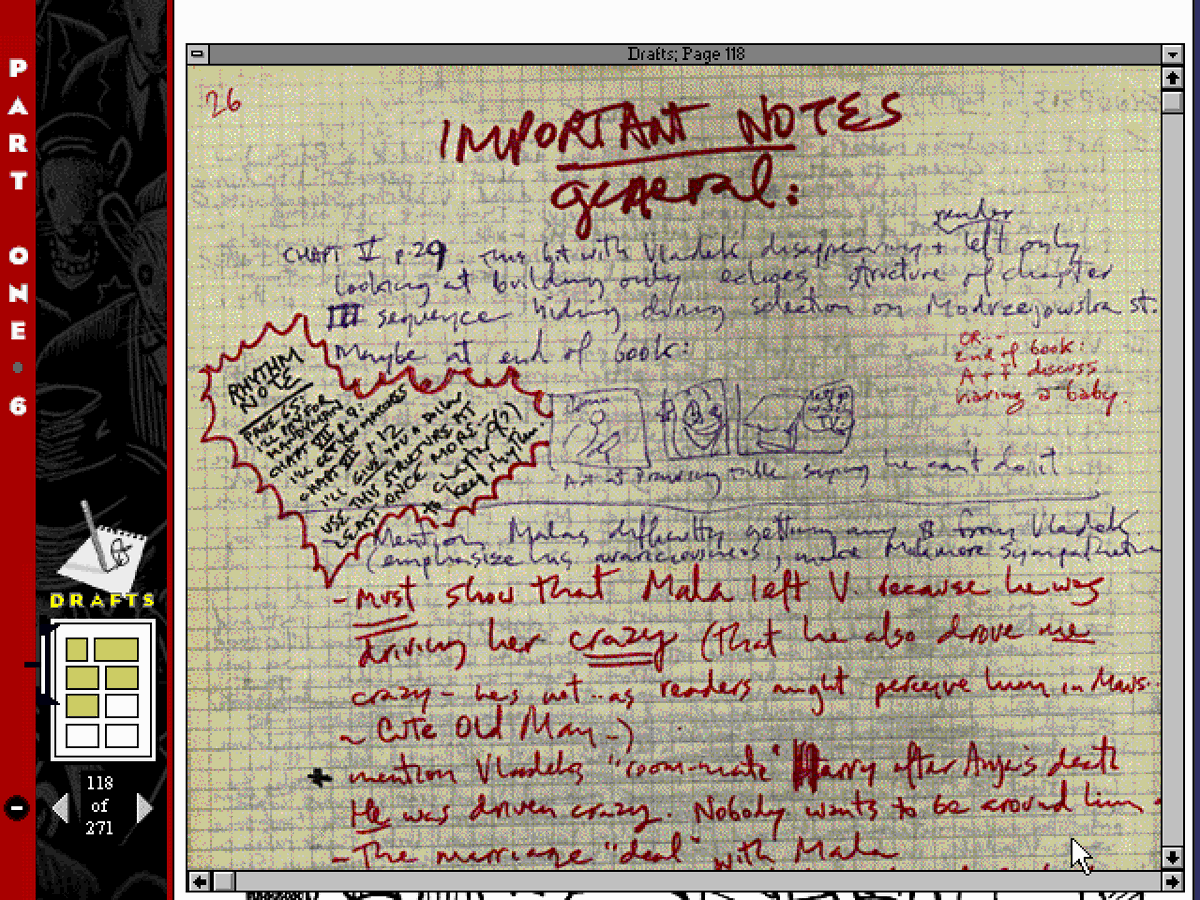 PART ONE • 6
Drafts; Page 118
26
IMPORTANT NOTES
general:
reader
CHAPT II p.29. This bit with Vladek disappearing + left only
looking at building only echoes structure of chapter
III sequence hiding during selection on Modrzejowska st.
Maybe at end of book:
OR...
End of book:
A + F discuss
having a baby.
RHYTHM
NOTE
PAGE 65:
CHAPT III p. 12
I'LL GIVE YOU A DOLLAR
USE THIS STRUCTURE AT
LEAST ONCE MORE
to keep rhythm.
Art at drawing table saying he can't do it
Mention Malas difficulty getting any $ from Vladek
(emphasize his avariciousness, make Mala more sympathetic
- Must show that Mala left V. because he was
driving her crazy (that he also drove me
crazy - hes not... as readers might perceive him in Maus..
~ Cute Old Man -)
+ mention Vladeks "room-mate" Harry after Anja's death
He was driven crazy. Nobody wants to be around him.
- The marriage "deal" with Mala
DRAFTS
118
of
271